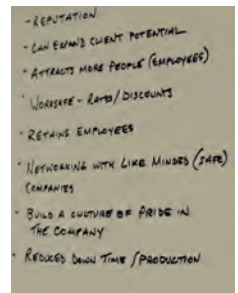 - REPUTATION
- CAN EXPAND CLIENT POTENTIAL
- ATTRACTS MORE PEOPLE (EMPLOYEES)
- WORKSAFE - RATES/DISCOUNTS
- RETAINS EMPLOYEES
- NETWORKING WITH LIKE MINDED (SAFE)
COMPANIES
- BUILD A CULTURE OF PRIDE IN
THE COMPANY
- REDUCED DOWN TIME/PRODUCTION